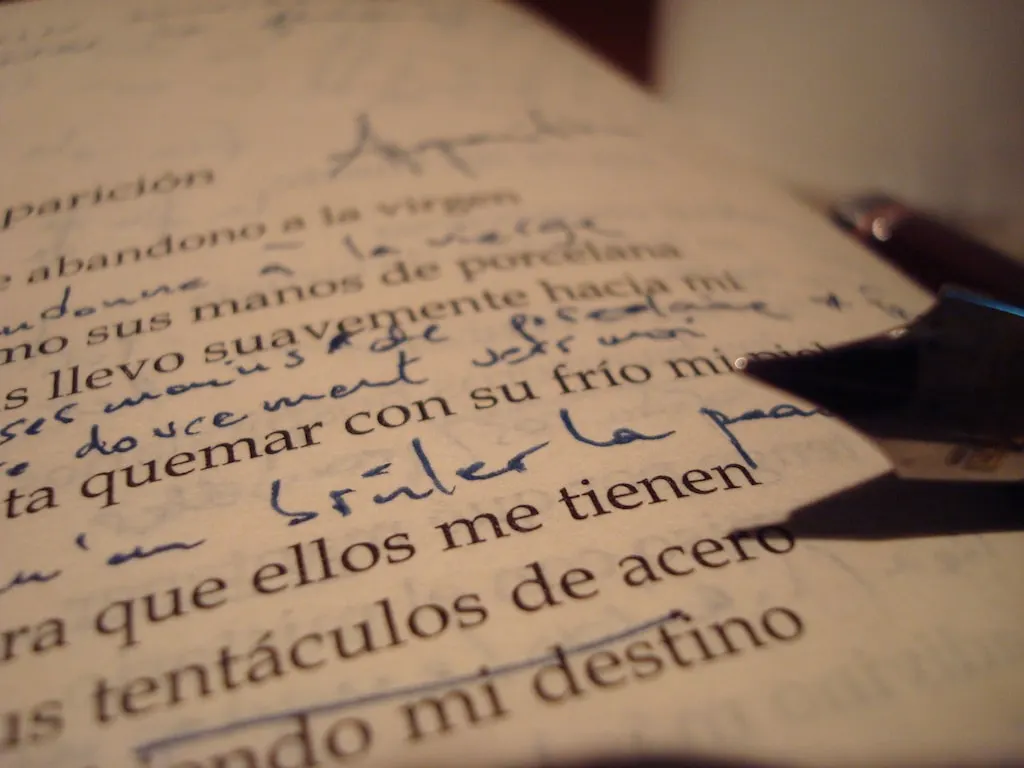 parición
e abandono a la virgen
donne à la vierge
mo sus manos de porcelana
s llevo suavemente hacia mi
ses mains de porcelaine
doucement vers moi
ta quemar con su frío mi
brûler la peau
ra que ellos me tienen
us tentáculos de acero
ndo mi destino